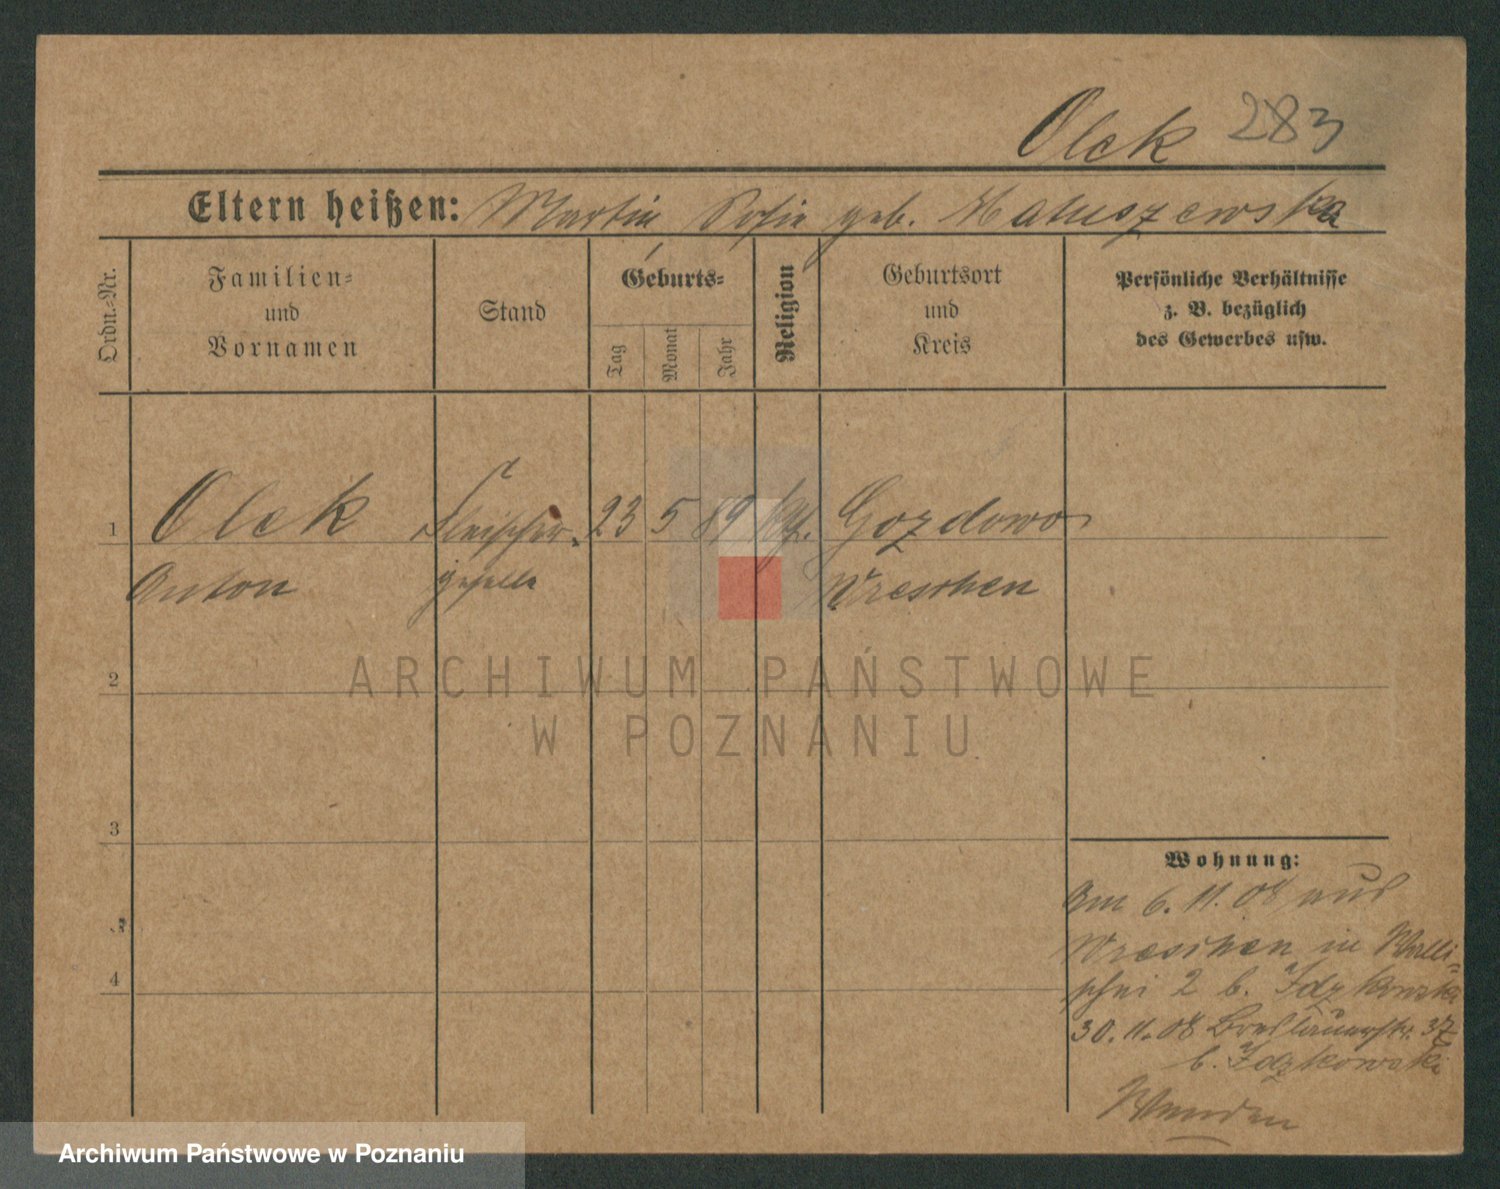 Olek 283
Eltern heißen: Martin Sofie geb. Matuszewska
Ordn.-Nr.
Familien-
und
Vornamen
Stand
Geburts-
Tag
Monat
Jahr
Religion
Geburtsort
und
Kreis
Persönliche Verhältnisse
z. B. bezüglich
des Gewerbes usw.
1 Olek Fleischer- 23 5 89 kth. Gozdowo
Anton geselle Wreschen
2
3
4
ARCHIWUM PAŃSTWOWE
W POZNANIU
Wohnung:
Am 6. 11. 08 aus
Wreschen in Walli-
schei 2 b. Idzkowski
30. 11. 08 Breslauerstr. 37
b. Idzkowski
Wenden
Archiwum Państwowe w Poznaniu